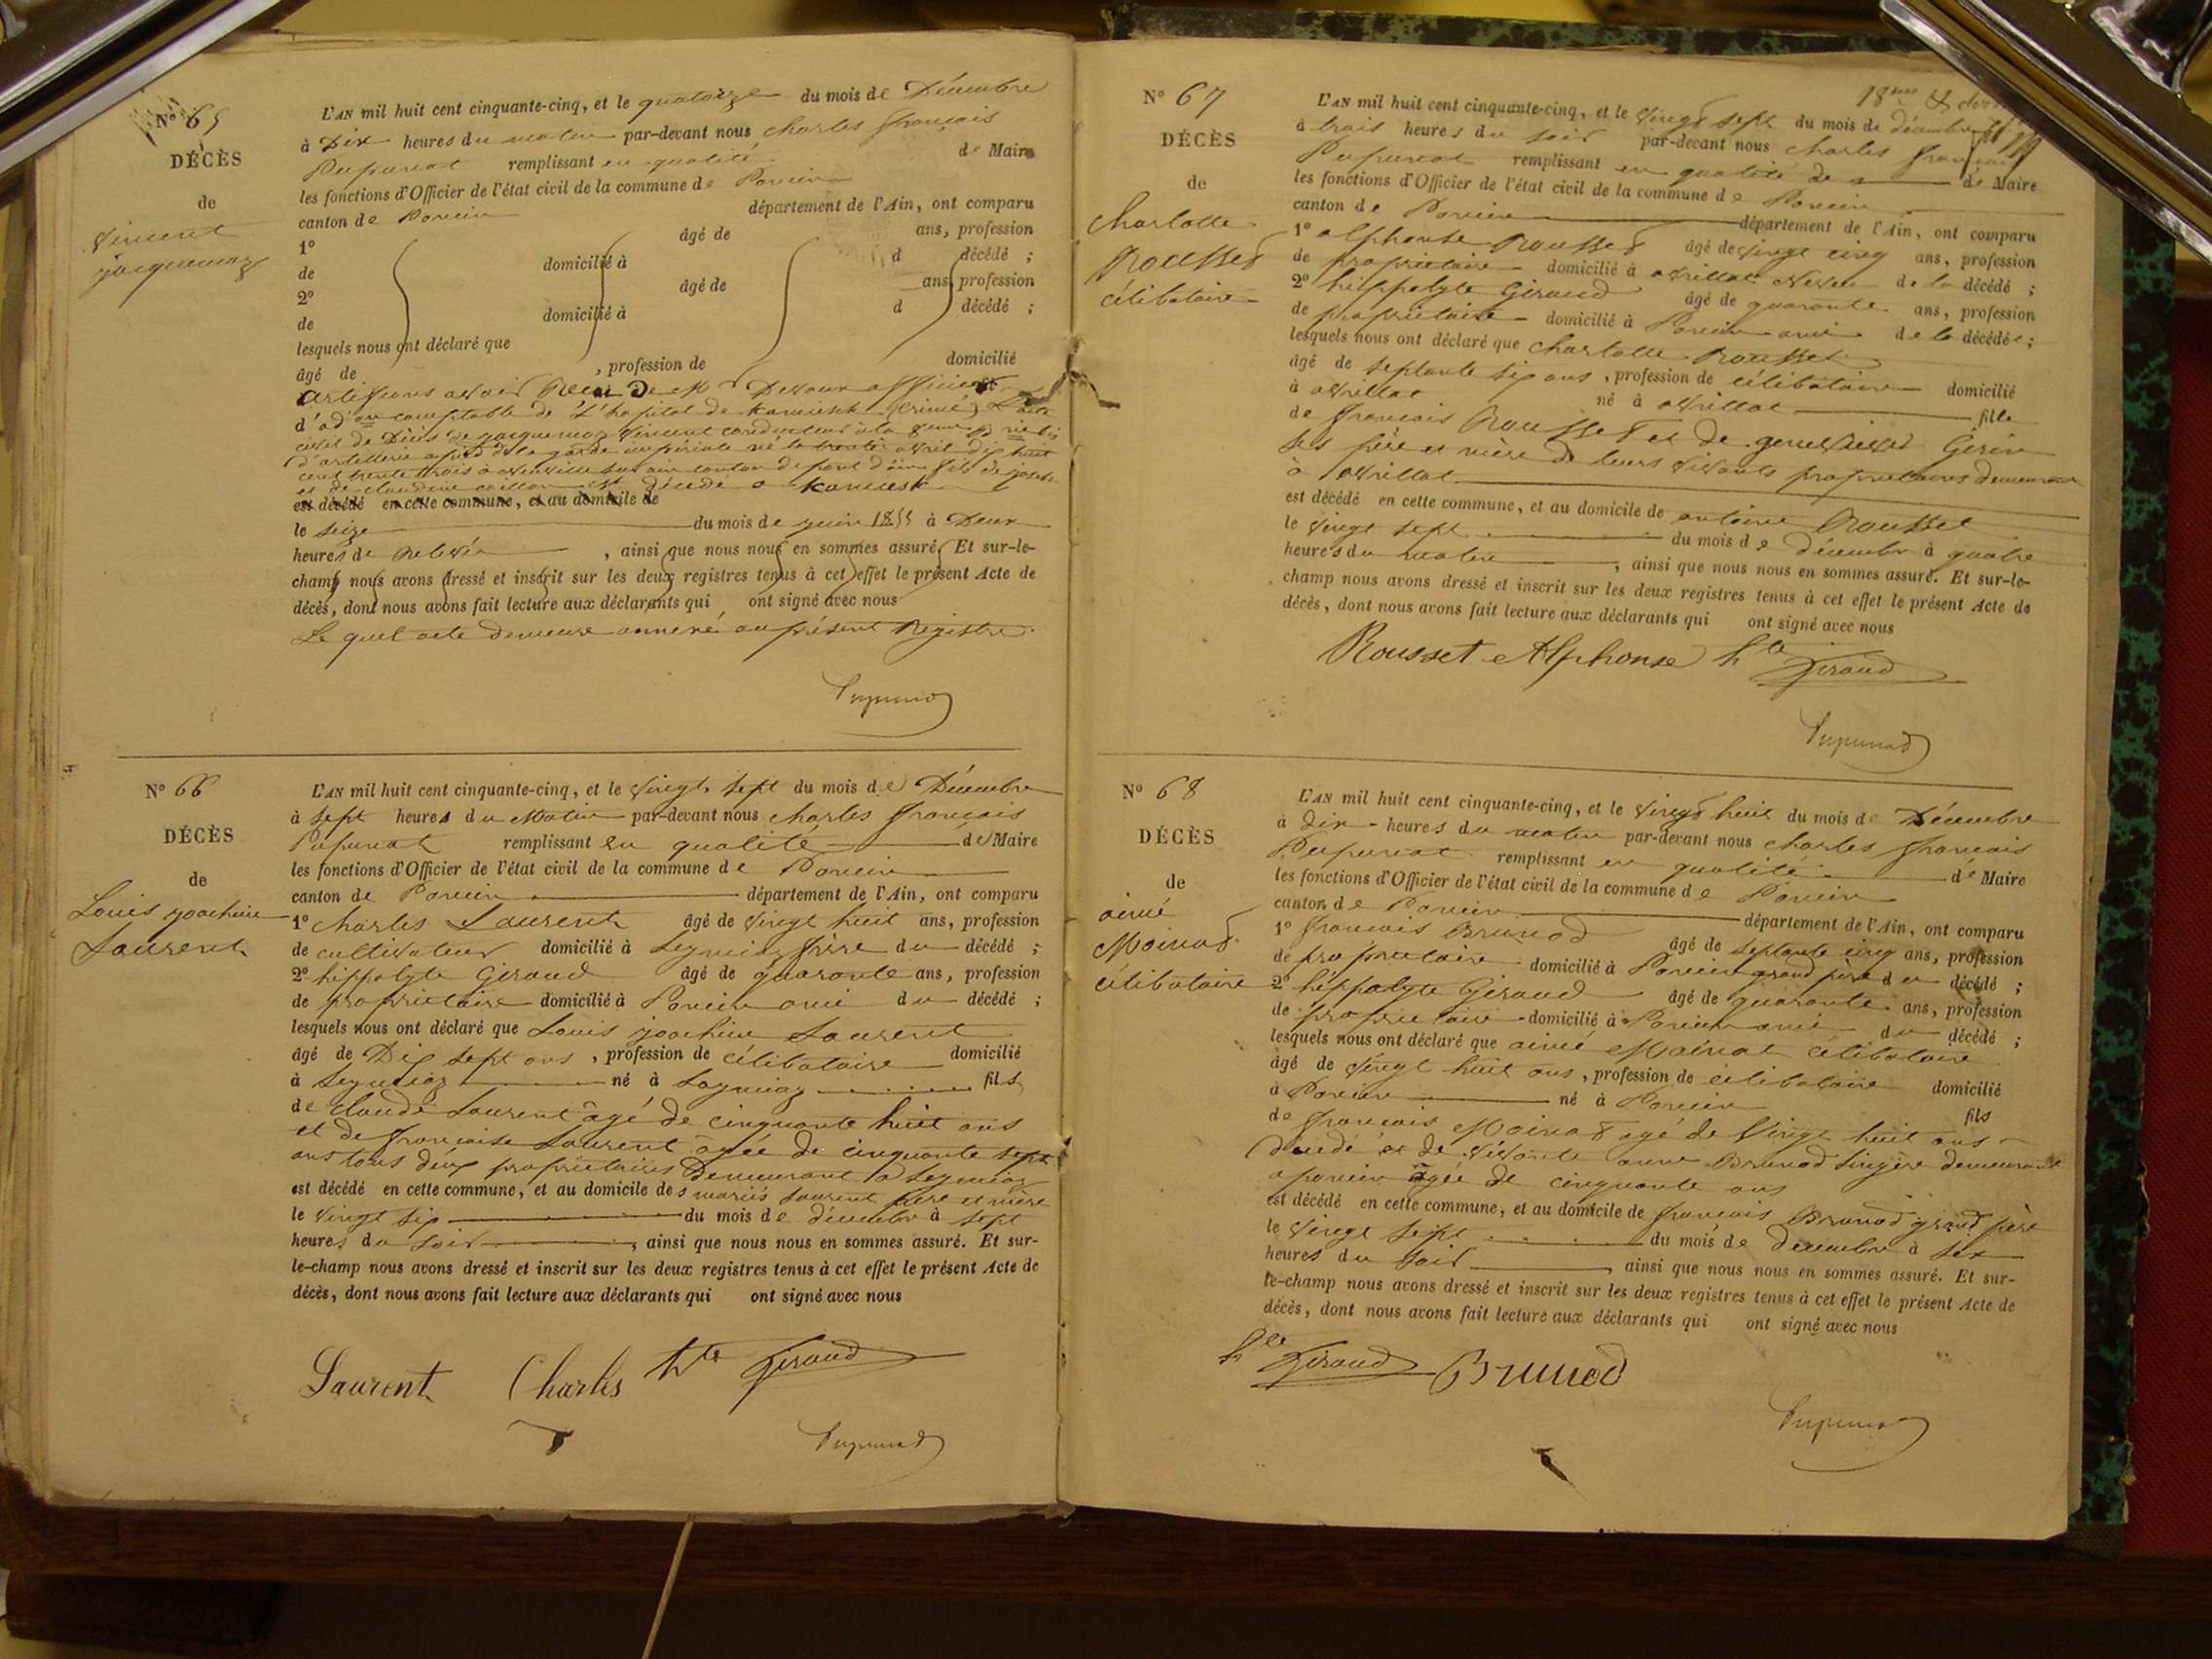 N° 65
DÉCÈS
de
Vincent
jacquemoz
L'AN mil huit cent cinquante-cinq, et le quatorze du mois de Décembre
à Dix heures du matin par-devant nous charles françois
Pupunat remplissant en qualité de Maire
les fonctions d'Officier de l'état civil de la commune de Poncin
canton de Poncin département de l'Ain, ont comparu
1° âgé de ans, profession
de domicilié à d décédé ;
2° âgé de ans, profession
de domicilié à d décédé ;
lesquels nous ont déclaré que
âgé de , profession de domicilié
Certifions avoir Reçu De Mr Devaux officier
d'ad on comptable de L'hopital de Kamiesh (Crimé) L'acte
civil de Décès de jacquemoz Vincent conducteur à la
d'artillerie à pied de la garde impériale né le trente avril dix huit
cent trente trois à Neuville sur ain canton de pont d'ain fils de
et de claudine est décédé a Kamiesh
est décédé en cette commune, et au domicile de
le seize du mois de juin 1855 à Deux
heures de Relevée , ainsi que nous nous en sommes assuré. Et sur-le-
champ nous avons dressé et inscrit sur les deux registres tenus à cet effet le présent Acte de
décès, dont nous avons fait lecture aux déclarants qui ont signé avec nous
Le quel acte demeure annexé au présent Registre.
Pupunat
N° 66
DÉCÈS
de
Louis joachim
Laurent
L'AN mil huit cent cinquante-cinq, et le Vingt sept du mois de Décembre
à sept heures du Matin par-devant nous charles françois
Pupunat remplissant en qualité de Maire
les fonctions d'Officier de l'état civil de la commune de Poncin
canton de Poncin département de l'Ain, ont comparu
1° Charles Laurent âgé de Vingt huit ans, profession
de cultivateur domicilié à Leymiaz frère du décédé ;
2° hippolyte Giraud âgé de quarante ans, profession
de propriétaire domicilié à Poncin ami du décédé ;
lesquels nous ont déclaré que Louis joachim Laurent
âgé de Dix sept ans , profession de célibataire domicilié
à Leymiaz né à Leymiaz fils
de claude Laurent âgé de cinquante huit ans
et de françoise Laurent âgée de cinquante sept
ans tous deux propriétaires Demeurant à Leymiaz
est décédé en cette commune, et au domicile des mariés Laurent père et mère
le Vingt six du mois de décembre à sept
heures du soir , ainsi que nous nous en sommes assuré. Et sur-
le-champ nous avons dressé et inscrit sur les deux registres tenus à cet effet le présent Acte de
décès, dont nous avons fait lecture aux déclarants qui ont signé avec nous
Laurent Charles hte Giraud
Pupunat
N° 67
DÉCÈS
de
Charlotte
Rousset
célibataire
18me &
L'AN mil huit cent cinquante-cinq, et le Vingt sept du mois de décembre
à trois heures du soir par-devant nous charles françois
Pupunat remplissant en qualité de de Maire
les fonctions d'Officier de l'état civil de la commune de Poncin
canton de Poncin département de l'Ain, ont comparu
1° alphonse Rousset âgé de Vingt cinq ans, profession
de propriétaire domicilié à avrillat Neveu de la décédé ;
2° hippolyte Giraud âgé de quarante ans, profession
de propriétaire domicilié à Poncin ami de la décédée ;
lesquels nous ont déclaré que Charlotte Rousset
âgé de septante six ans , profession de célibataire domicilié
à avrillat né à avrillat fille
de françois Rousset et de genevieve Gérin
ses père et mère de leurs Vivants propriétaires demeurant
à avrillat
est décédé en cette commune, et au domicile de antoine Rousset
le Vingt sept du mois de décembre à quatre
heures du matin , ainsi que nous nous en sommes assuré. Et sur-le-
champ nous avons dressé et inscrit sur les deux registres tenus à cet effet le présent Acte de
décès, dont nous avons fait lecture aux déclarants qui ont signé avec nous
Rousset Alphonse hte Giraud
Pupunat
N° 68
DÉCÈS
de
aimé
Moinat
célibataire
L'AN mil huit cent cinquante-cinq, et le Vingt huit du mois de Décembre
à dix heures du matin par-devant nous charles françois
Pupunat remplissant en qualité de Maire
les fonctions d'Officier de l'état civil de la commune de Poncin
canton de Poncin département de l'Ain, ont comparu
1° françois Brunod âgé de septante cinq ans, profession
de propriétaire domicilié à Poncin grand père du décédé ;
2° hippolyte Giraud âgé de quarante ans, profession
de propriétaire domicilié à Poncin ami du décédé ;
lesquels nous ont déclaré que aimé Moinat célibataire
âgé de Vingt huit ans , profession de célibataire domicilié
à Poncin né à Poncin fils
de françois Moinat agé de Vingt huit ans
Décédé et de Vivante anne Brunod lingère demeurant
a poncin âgée de cinquante ans
est décédé en cette commune, et au domicile de françois Brunod grand père
le Vingt sept du mois de décembre à six
heures du soir , ainsi que nous nous en sommes assuré. Et sur-
le-champ nous avons dressé et inscrit sur les deux registres tenus à cet effet le présent Acte de
décès, dont nous avons fait lecture aux déclarants qui ont signé avec nous
hte Giraud Brunod
Pupunat